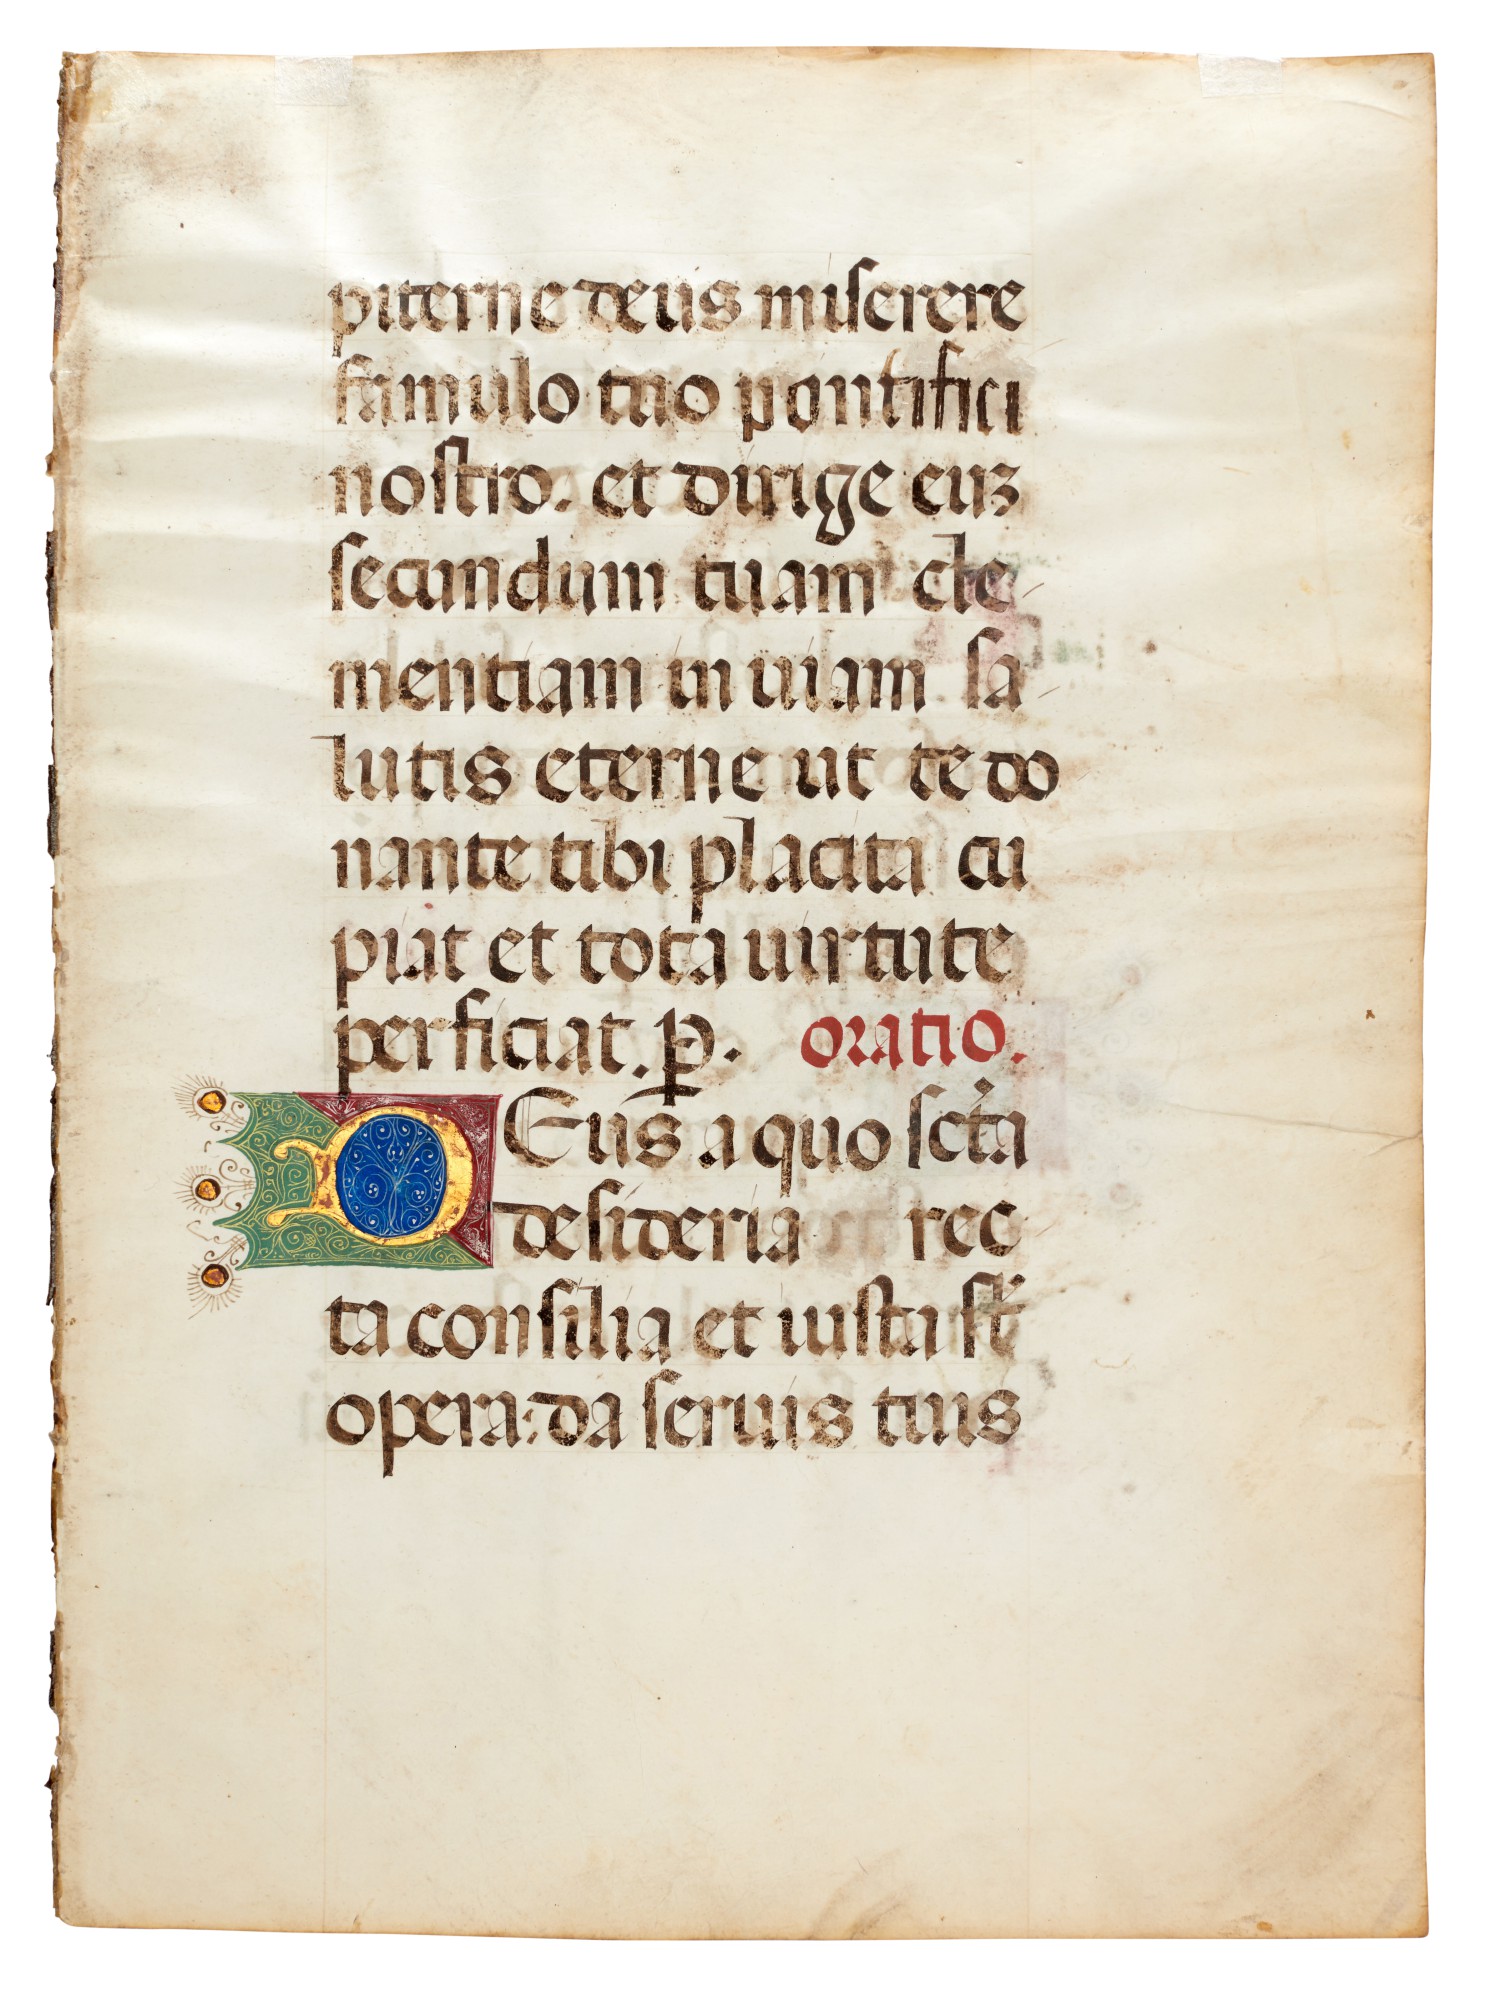 piterne deus miserere
famulo tuo pontifici
nostro. et dirige euz
secundum tuam cle
mentiam in uiam sa
lutis eterne ut te do
nante tibi placita cu
piat et tota uirtute
perficiat. P. oratio.
DEus a quo scta
desideria rec
ta consilia et iusta st
opera: da seruis tuis